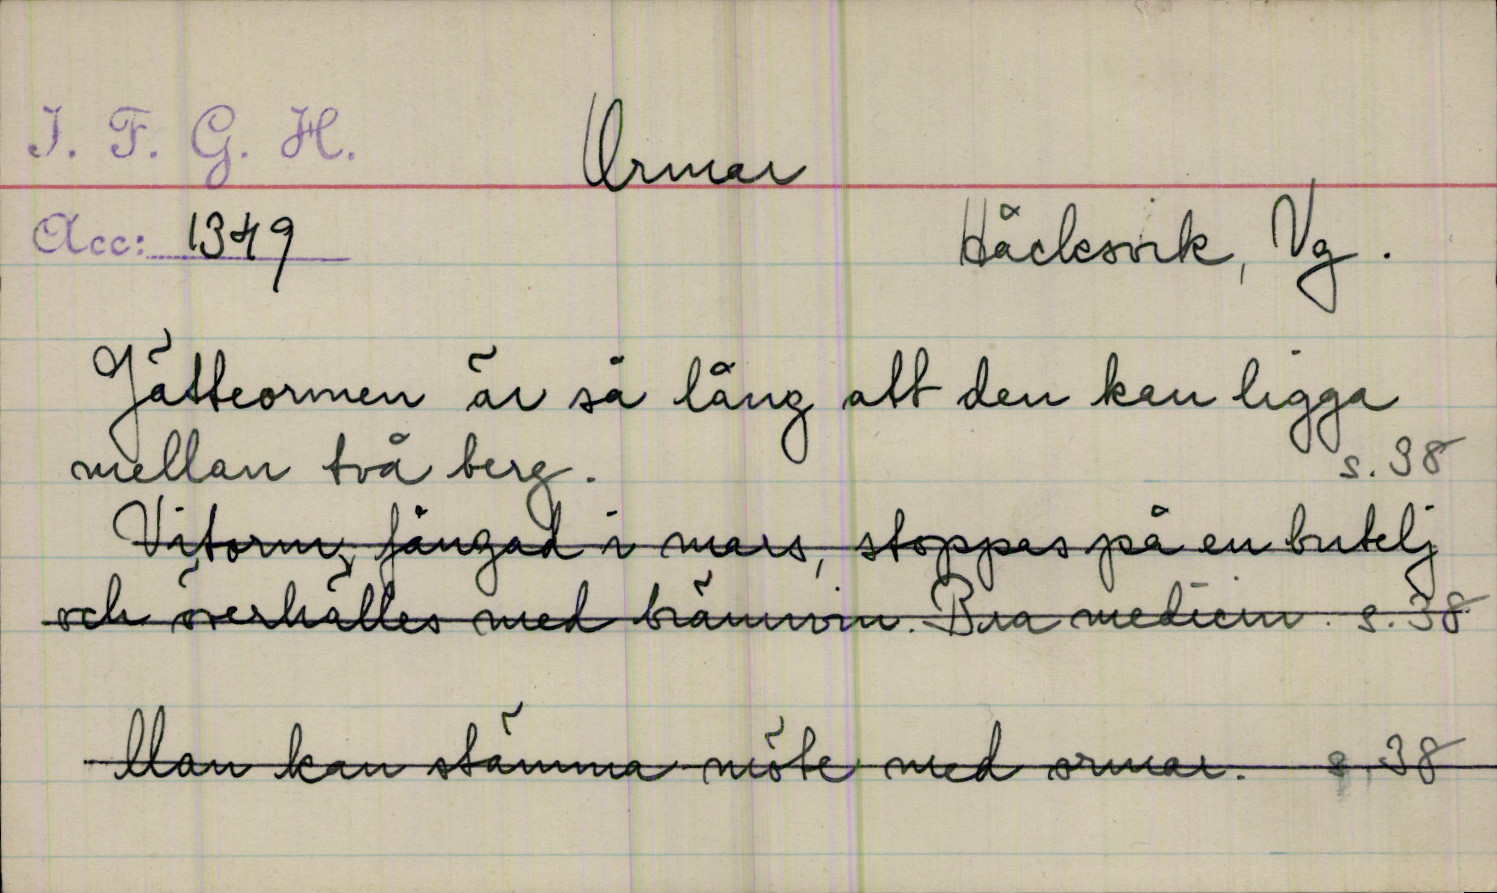 I. F. G. H.
Ormar
Acc: 1349
Håcksvik, Vg.
Jätteormen är så lång att den kan ligga
mellan två berg. s. 38
Vitorm, fångad i mars, stoppas på en butelj
och överhälles med brännvin. Bra medicin. s. 38
Man kan stämma möte med ormar. s. 38